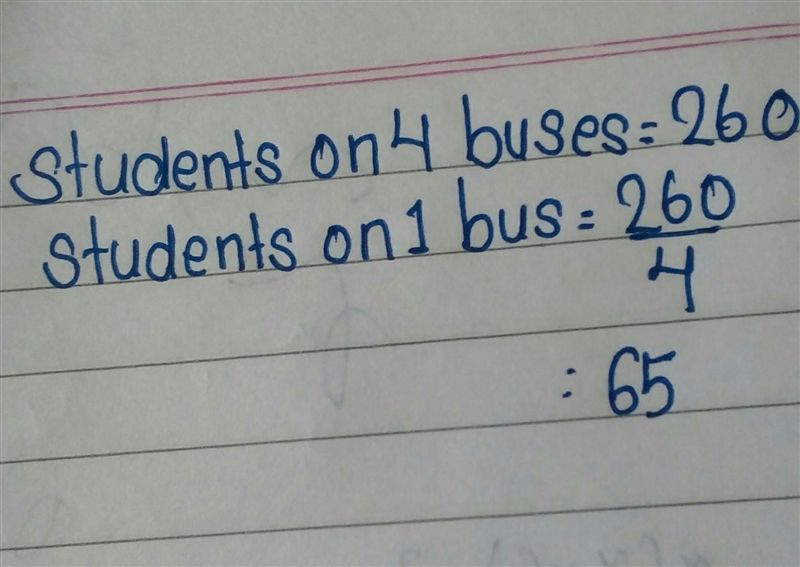 Students on 4 buses = 260
Students on 1 bus = 260
4
: 65